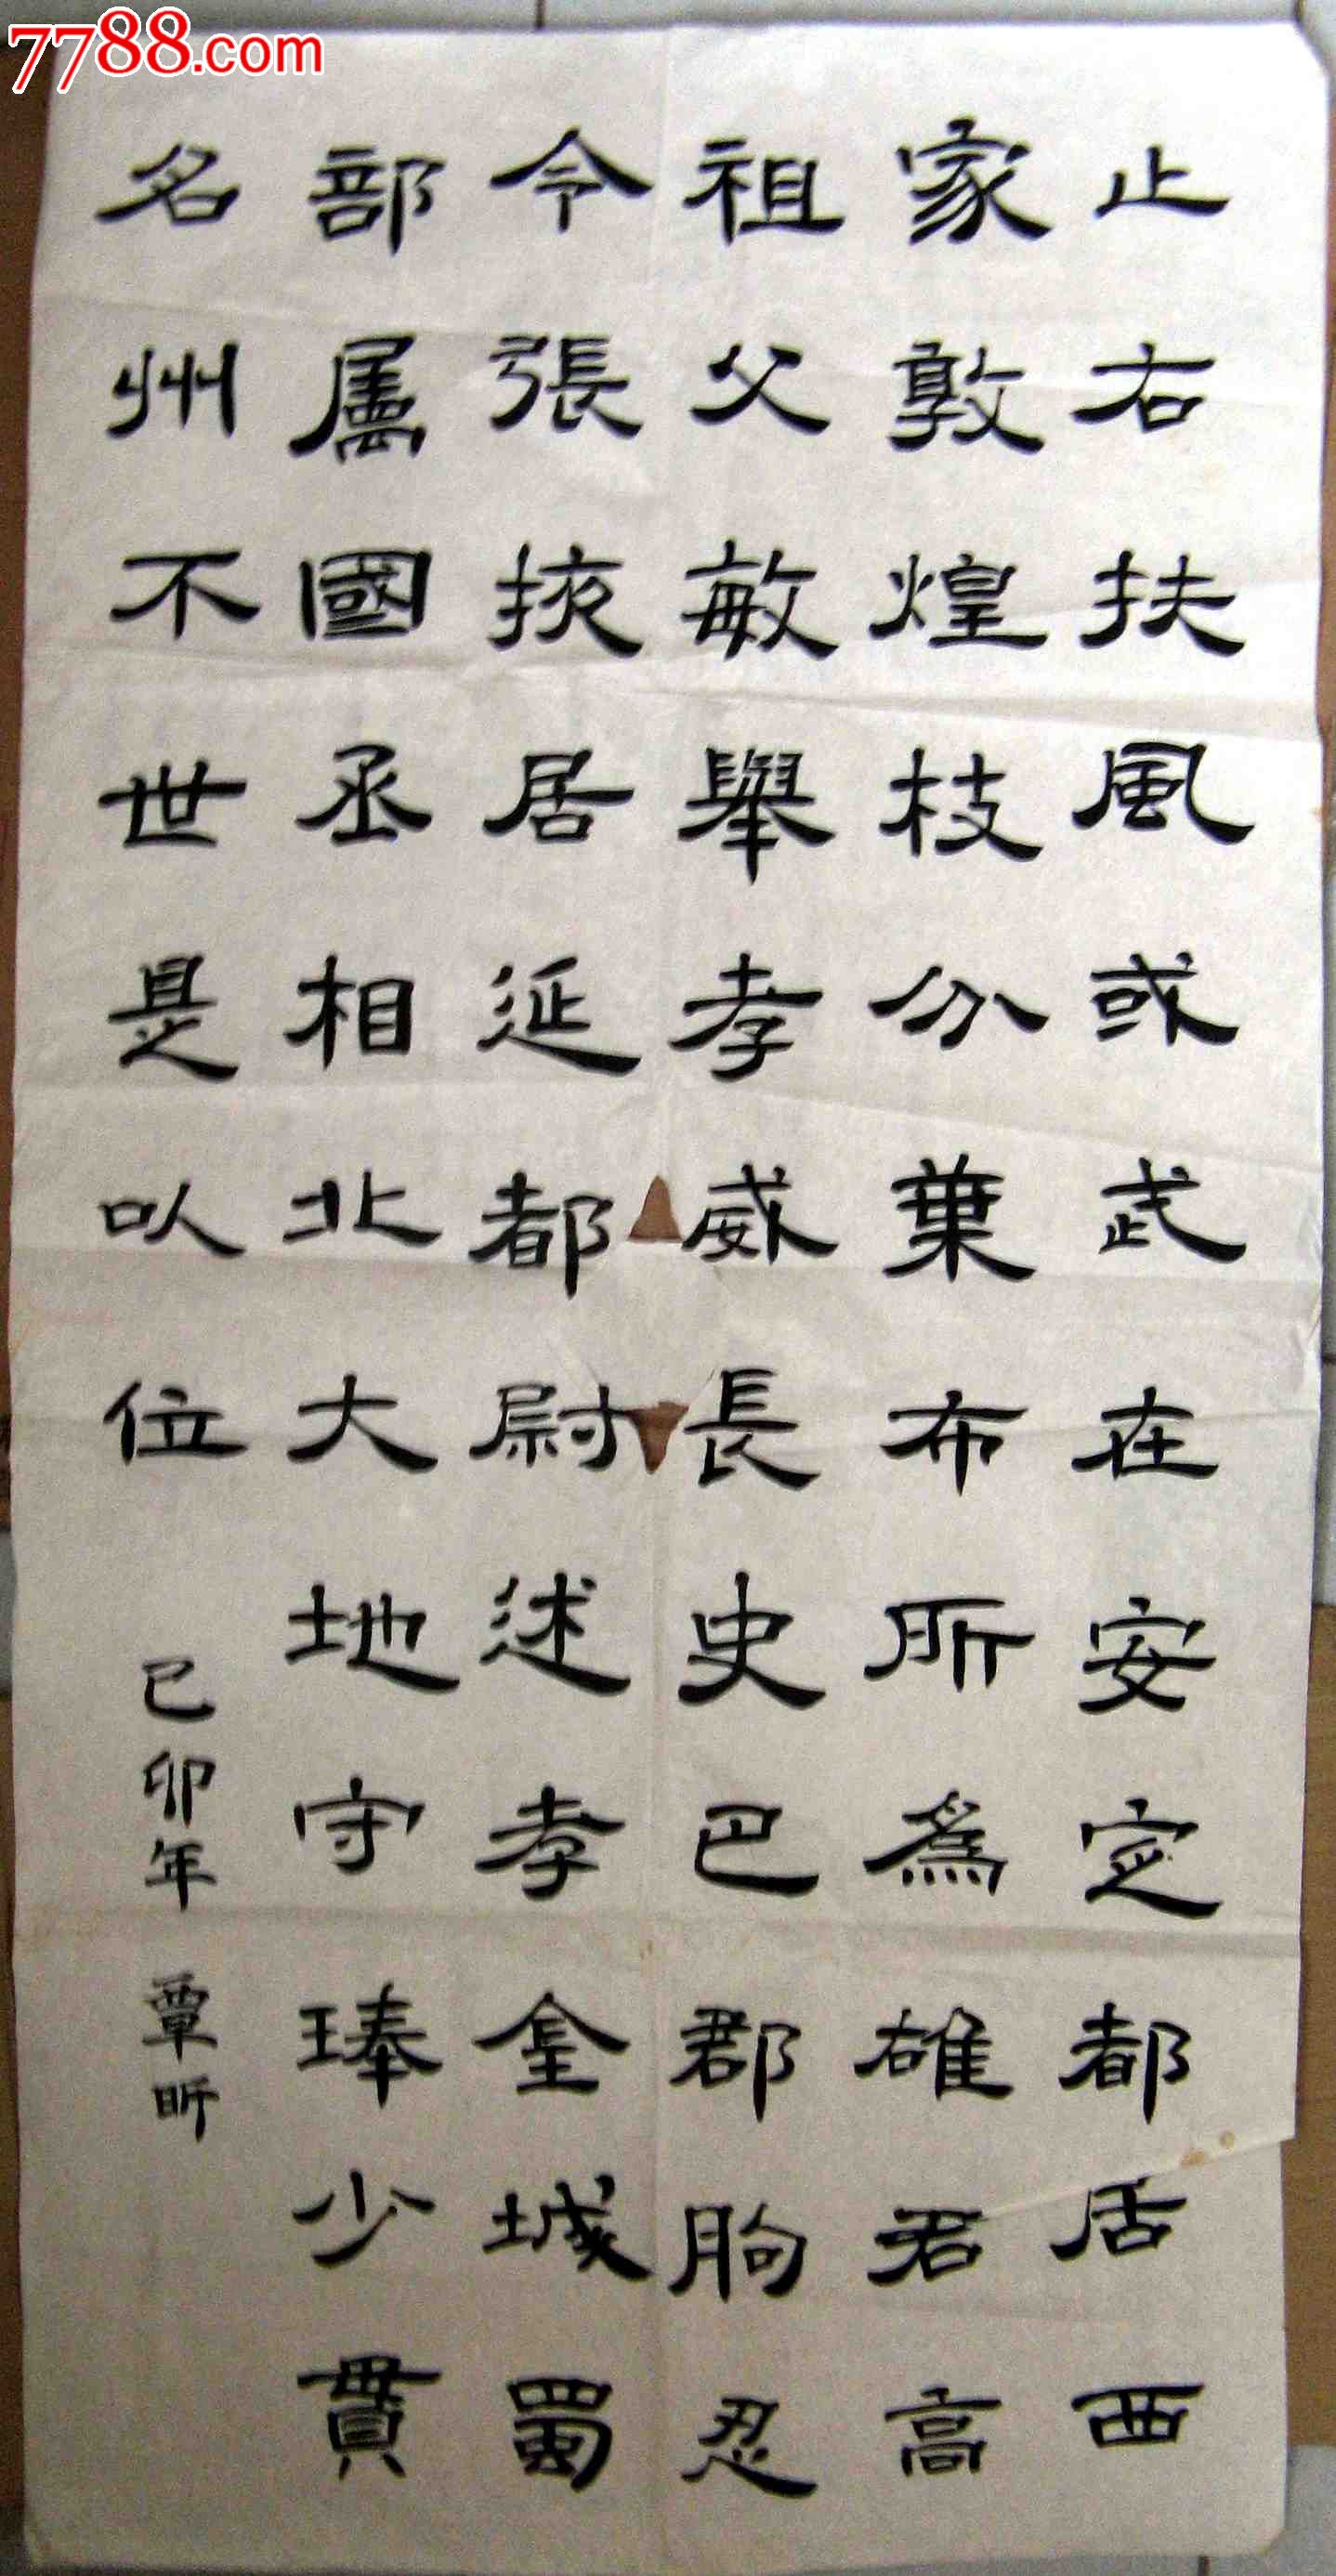 7788.com
止右扶風或武在安定都居西
家敦煌枝分葉布所為雄君高
祖父敏舉孝威長史巴郡朐忍
令張掖居延都尉述孝金城蜀
部屬國丞相北大地守琫少貫
名州不世是以位
已卯年 覃昕